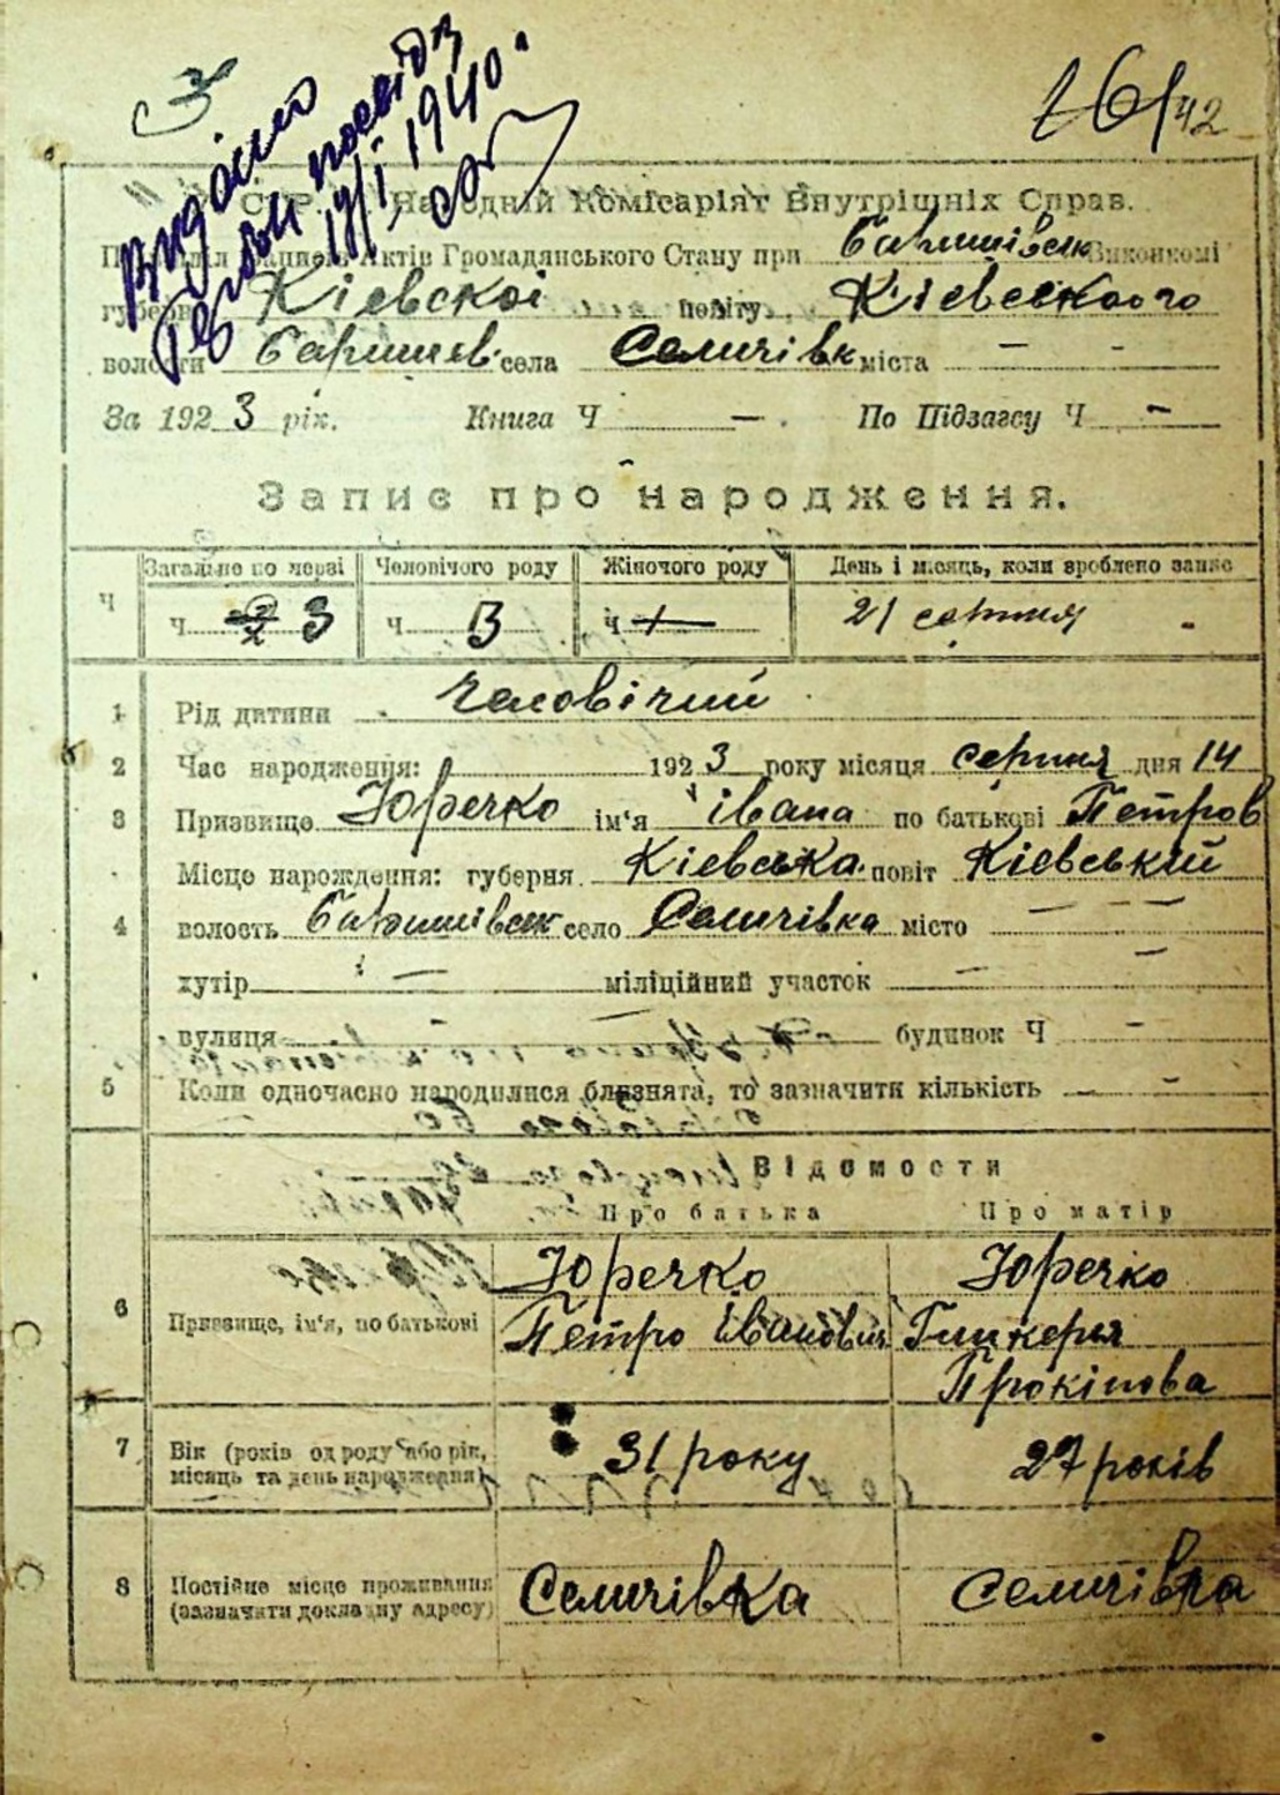 З
161/42
Видано
посвідч
19/I 1940.
С.Р. Народній Комісаріят Внутрішніх Справ.
Актів Громадянського Стану при Баришівськ Виконкомі
губерн Кіевскоі повіту Кіевскаого
волости Баришев. села Селичівк міста — -
За 1923 рік. Книга Ч — . По Підзагсу Ч -
Запис про народження.
Ч Загальне по черзі Чоловічого роду Жіночого роду День і місяць, коли зроблено запис
ч. 3 ч. 3 ч 21 серпня -
1 Рід дитини Чоловічий
2 Час народження: 1923 року місяця серпня дня 14
3 Призвище Юречко ім'я Івана по батькові Петров
Місце нарождення: губерня Кіевська повіт Кіевський
4 волость Баришівськ село Селичівка місто — — —
хутір — міліційний участок — —
вулиця — будинок Ч -
5 Коли одночасно народилися близнята, то зазначити кількість - -
Відомости
Про батька Про матір
6 Призвище, ім'я, по батькові Юречко Юречко
Петро Іванович Гликерия
Прокіпова
7 Вік (років од роду або рік, 31 року 27 років
місяць та день народження)
8 Постійне місце проживання Селичівка Селичівка
(зазначити докладну адресу)